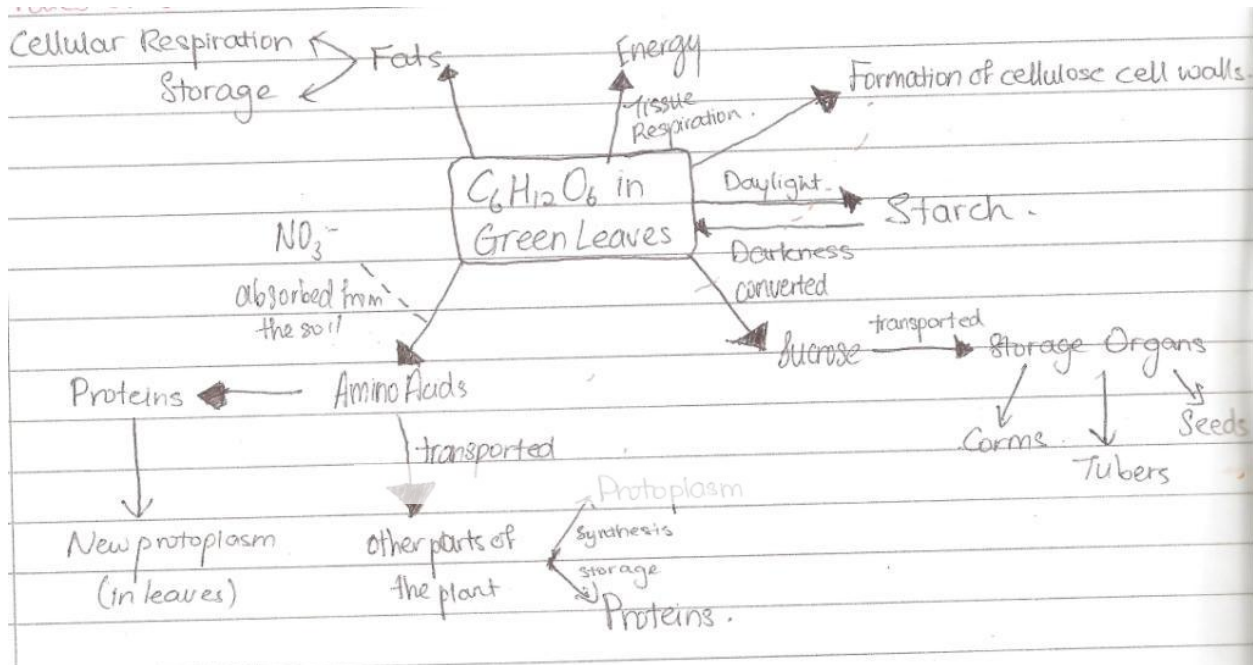 Cellular Respiration
Storage
Fats
Energy
Tissue
Respiration.
Formation of cellulose cell walls.
C₆H₁₂O₆ in
Green Leaves
Daylight.
Starch.
Darkness
NO₃⁻
absorbed from
the soil
converted
Sucrose
transported
Storage Organs
Corms.
Tubers
Seeds
Proteins
Amino Acids
transported
New protoplasm
(in leaves)
other parts of
the plant
Synthesis
Protoplasm
storage
Proteins.